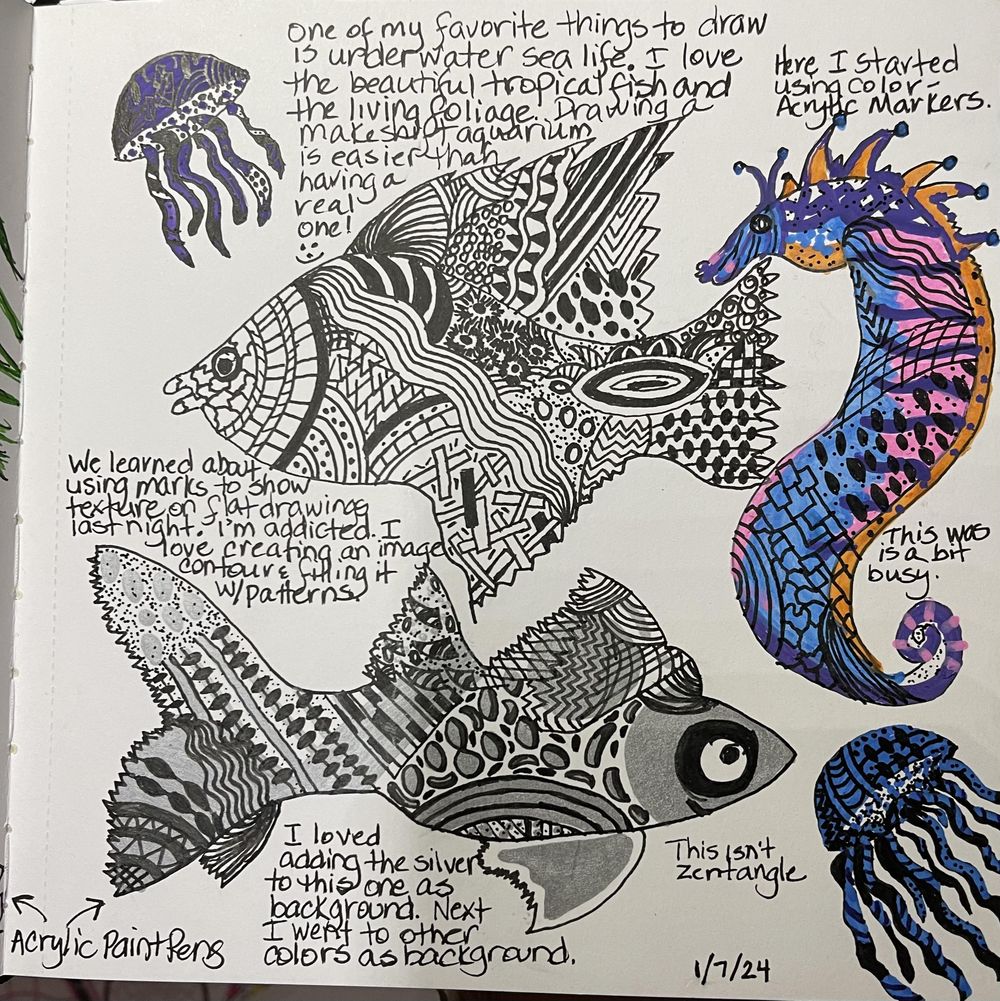 One of my favorite things to draw
is underwater sea life. I love
the beautiful tropical fish and
the living foliage. Drawing a
makeshift aquarium
is easier than
having a
real
one!
Here I started
using color -
Acrylic Markers.
We learned about
using marks to show
texture on flat drawings
last night. I'm addicted. I
love creating an image
contour & filling it
w/ patterns.
This was
is a bit
busy.
I loved
adding the silver
to this one as
background. Next
I went to other
colors as background.
This isn't
zentangle
Acrylic Paint Pens
1/7/24